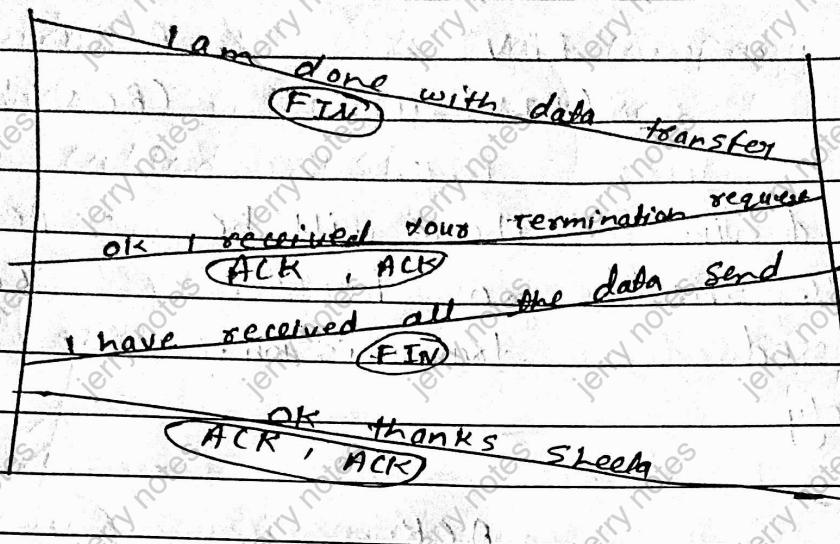 I am done with data transfer
FIN
OK I received your termination request
ACK, ACK
I have received all the data send
FIN
OK thanks Sheela
ACK, ACK
jerry notes